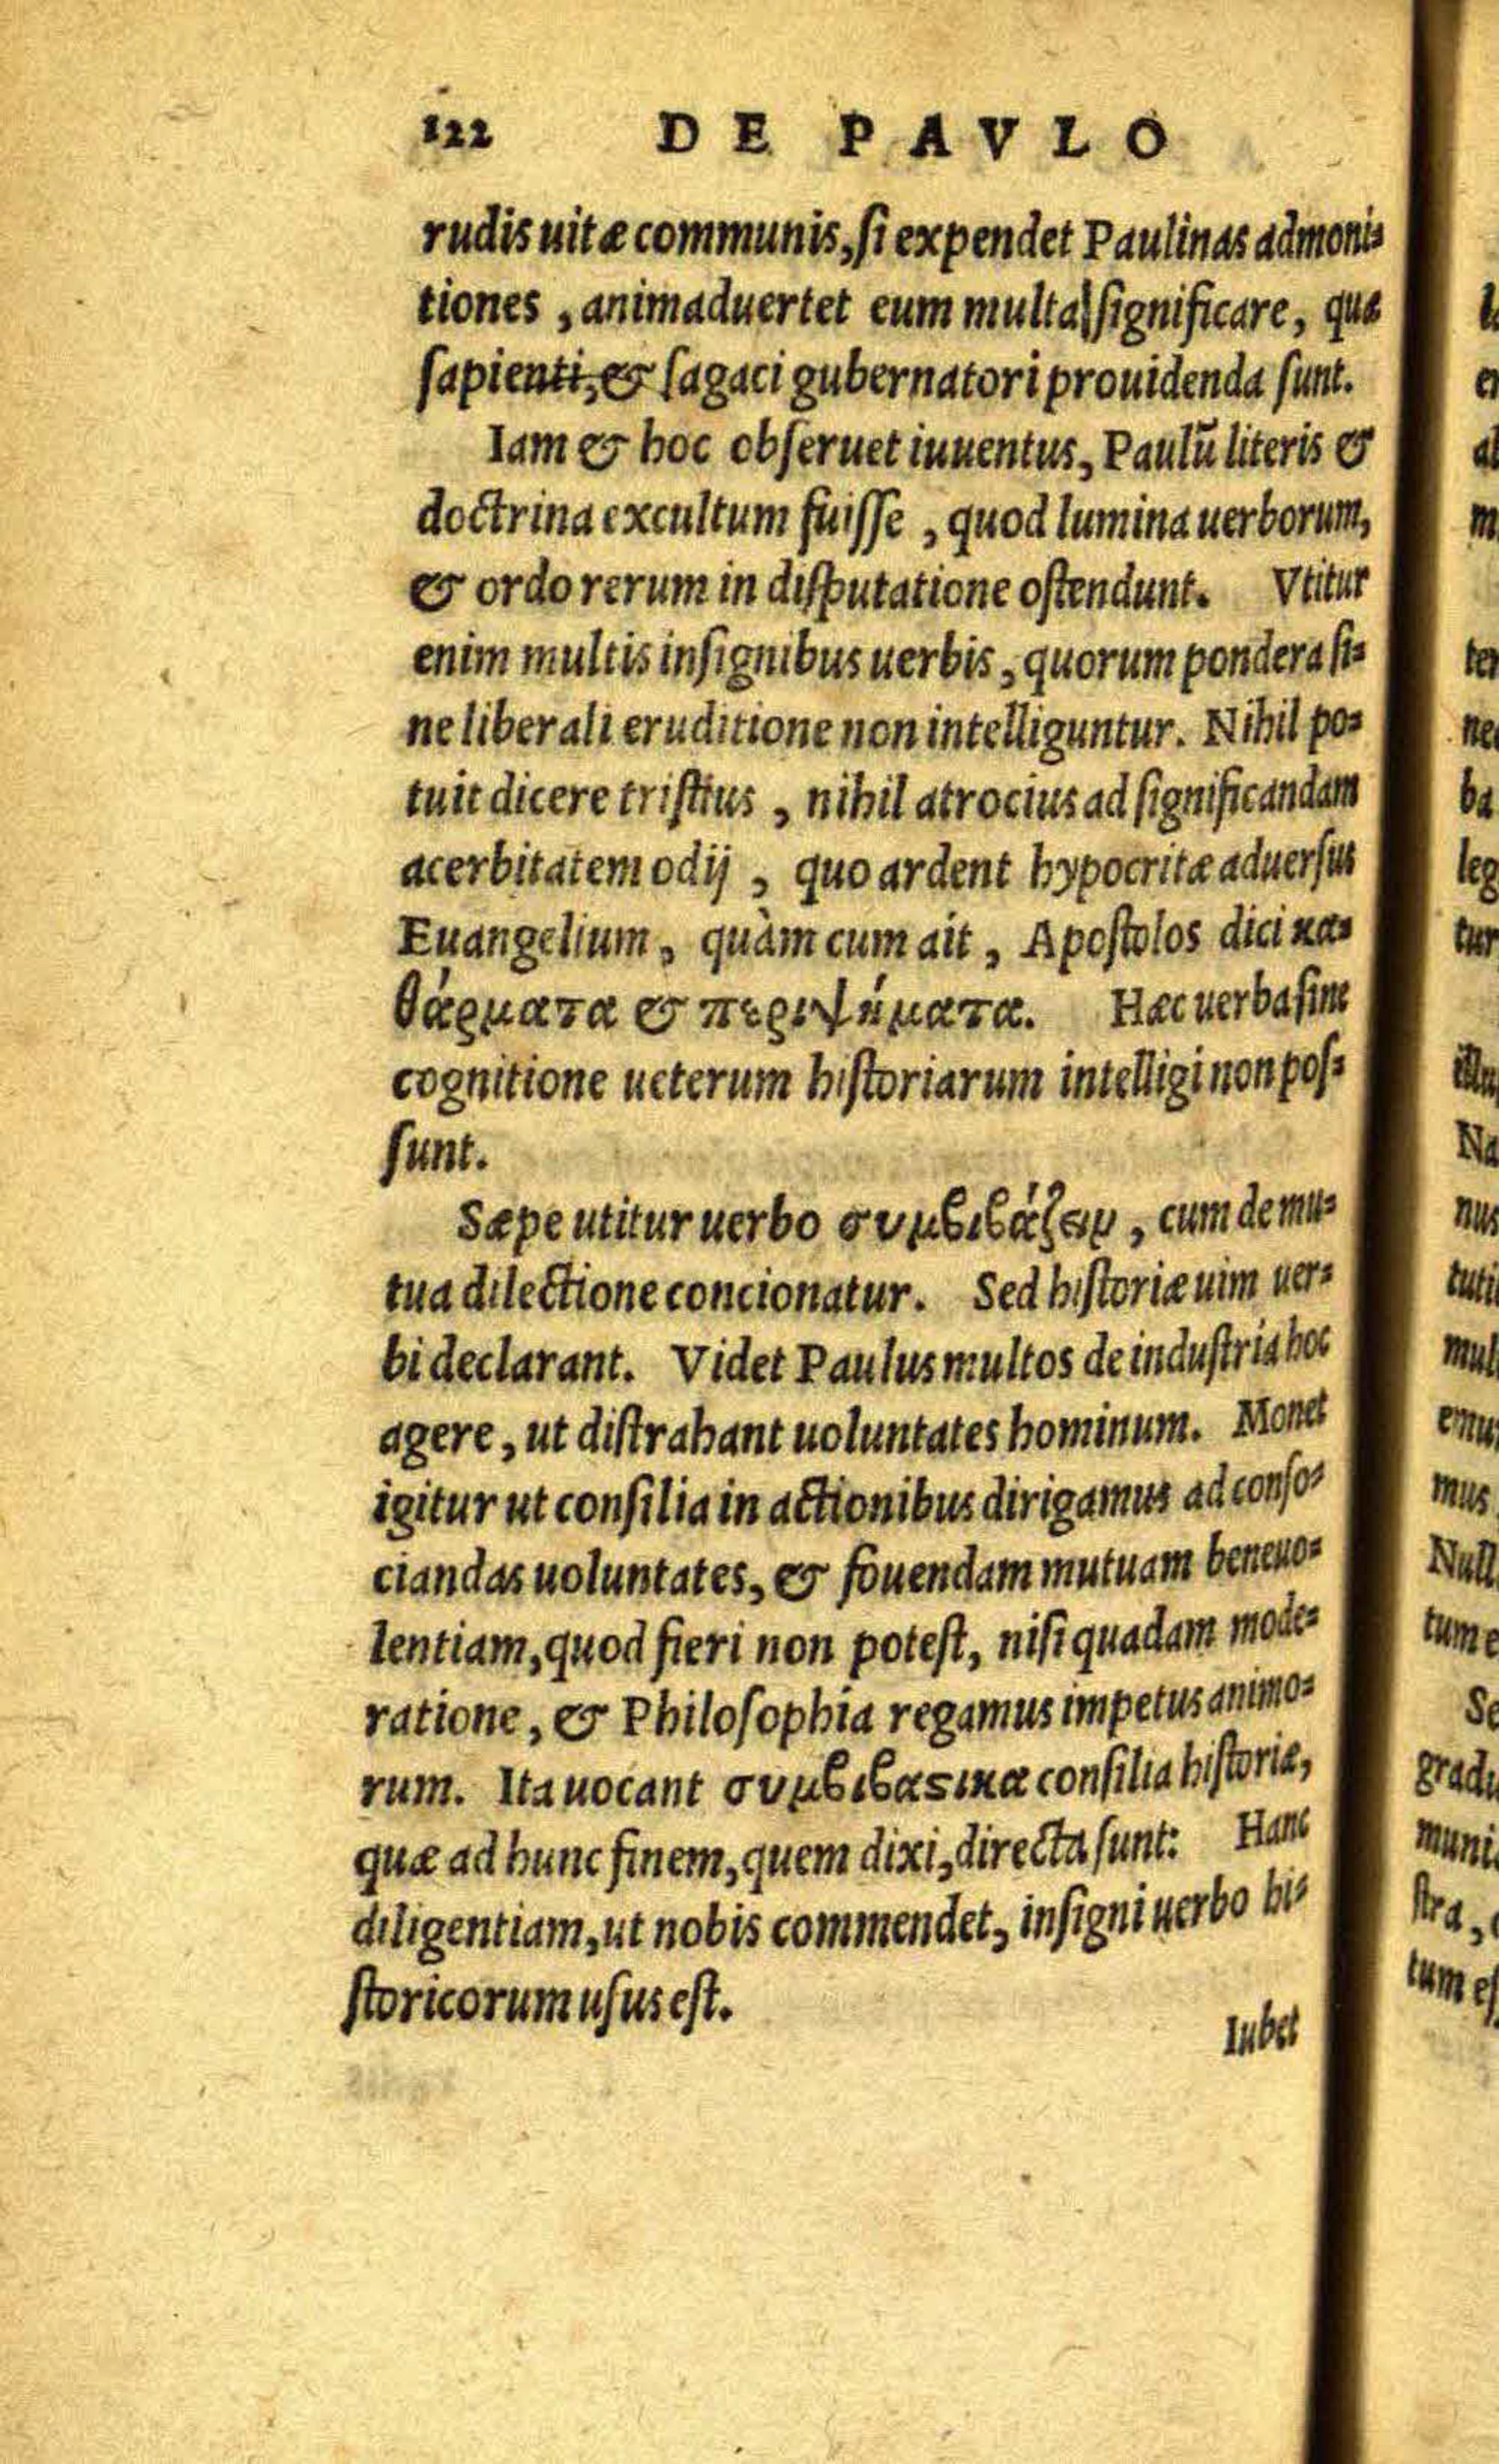 122 DE PAVLO
rudis uitæ communis, si expendet Paulinas admoni=
tiones, animaduertet eum multa significare, quæ
sapienti, & sagaci gubernatori prouidenda sunt.
Iam & hoc obseruet iuuentus, Paulū literis &
doctrina excultum fuisse, quod lumina uerborum,
& ordo rerum in disputatione ostendunt. Vtitur
enim multis insignibus uerbis, quorum pondera si=
ne liberali eruditione non intelliguntur. Nihil po=
tuit dicere tristius, nihil atrocius ad significandam
acerbitatem odij, quo ardent hypocritæ aduersus
Euangelium, quàm cum ait, Apostolos dici κα=
θάρματα & περιψήματα. Hæc uerba sine
cognitione ueterum historiarum intelligi non pos=
sunt.
Sæpe utitur uerbo συμβιβάζειν, cum de mu=
tua dilectione concionatur. Sed historiæ uim uer=
bi declarant. Videt Paulus multos de industria hoc
agere, ut distrahant uoluntates hominum. Monet
igitur ut consilia in actionibus dirigamus ad conso=
ciandas uoluntates, & fouendam mutuam beneuo=
lentiam, quod fieri non potest, nisi quadam mode=
ratione, & Philosophia regamus impetus animo=
rum. Ita uocant συμβιβαςικα consilia historiæ,
quæ ad hunc finem, quem dixi, directa sunt: Hanc
diligentiam, ut nobis commendet, insigni uerbo hi=
storicorum usus est.
Iubet